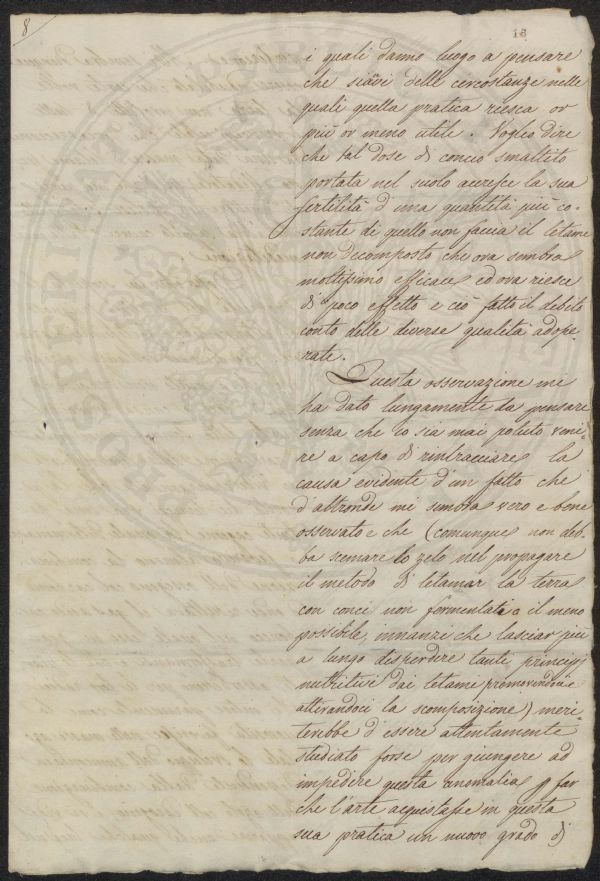 8
15
i quali danno luogo a pensare
che siavi delle circostanze nelle
quali quella pratica riesca or
più or meno utile. Voglio dire
che tal dose di concio smaltito
portata nel suolo accresce la sua
fertilità d'una quantità più co-
stante di quello non faccia il letame
non decomposto che ora sembra
moltissimo efficace ed ora riesce
di poco effetto e ciò fatto il debito
conto delle diverse qualità adope-
rate.
Questa osservazione mi
ha dato lungamente da pensare
senza che io sia mai potuto veni-
re a capo di rintracciare la
causa evidente d'un fatto che
d'altronde mi sembra vero e bene
osservato e che (comunque non deb-
ba scemare lo zelo nel propagare
il metodo di letamar la terra
con conci non fermentati o il meno
possibile, innanzi che lasciar più
a lungo disperdire tanti principj
nutritivi dai letami promovendoci e
attivandoci la scomposizione) meri-
terebbe d'essere attentamente
studiato forse per giungere ad
impedire questa anomalia p far
che l'arte acquistasse in questa
sua pratica un nuovo grado di